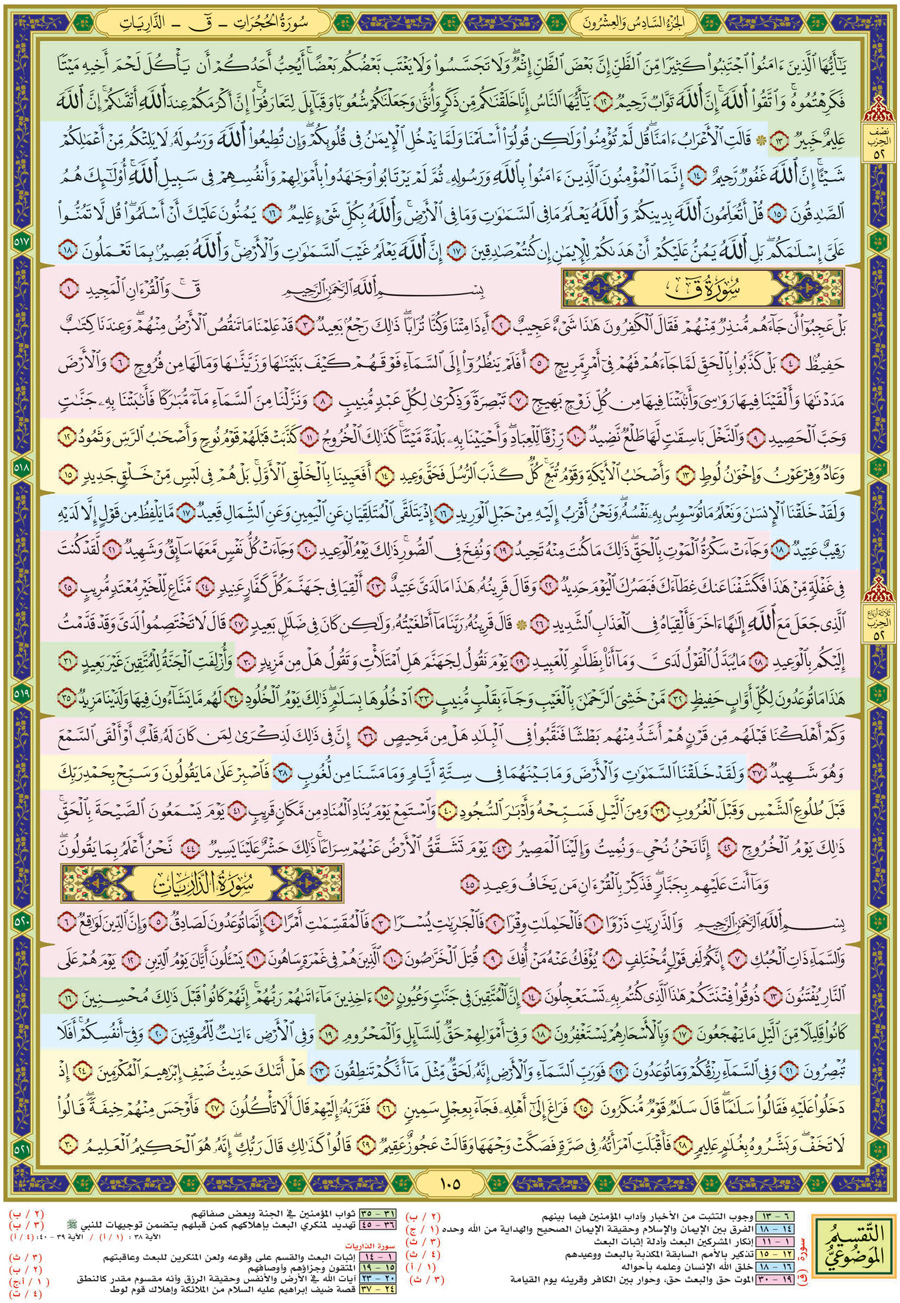 سُورَةُ الحُجُرَاتِ - قٓ - الذَّارِيَاتِ
الجُزْءُ السَّادِسُ وَالعِشْرُونَ
يَٰٓأَيُّهَا ٱلَّذِينَ ءَامَنُوا۟ ٱجْتَنِبُوا۟ كَثِيرًا مِّنَ ٱلظَّنِّ إِنَّ بَعْضَ ٱلظَّنِّ إِثْمٌ ۖ وَلَا تَجَسَّسُوا۟ وَلَا يَغْتَب بَّعْضُكُم بَعْضًا ۚ أَيُحِبُّ أَحَدُكُمْ أَن يَأْكُلَ لَحْمَ أَخِيهِ مَيْتًا
فَكَرِهْتُمُوهُ ۚ وَٱتَّقُوا۟ ٱللَّهَ ۚ إِنَّ ٱللَّهَ تَوَّابٌ رَّحِيمٌ ١٢ يَٰٓأَيُّهَا ٱلنَّاسُ إِنَّا خَلَقْنَٰكُم مِّن ذَكَرٍ وَأُنثَىٰ وَجَعَلْنَٰكُمْ شُعُوبًا وَقَبَآئِلَ لِتَعَارَفُوٓا۟ ۚ إِنَّ أَكْرَمَكُمْ عِندَ ٱللَّهِ أَتْقَىٰكُمْ ۚ إِنَّ ٱللَّهَ
عَلِيمٌ خَبِيرٌ ١٣ ۞ قَالَتِ ٱلْأَعْرَابُ ءَامَنَّا ۖ قُل لَّمْ تُؤْمِنُوا۟ وَلَٰكِن قُولُوٓا۟ أَسْلَمْنَا وَلَمَّا يَدْخُلِ ٱلْإِيمَٰنُ فِى قُلُوبِكُمْ ۖ وَإِن تُطِيعُوا۟ ٱللَّهَ وَرَسُولَهُۥ لَا يَلِتْكُم مِّنْ أَعْمَٰلِكُمْ
شَيْـًٔا ۚ إِنَّ ٱللَّهَ غَفُورٌ رَّحِيمٌ ١٤ إِنَّمَا ٱلْمُؤْمِنُونَ ٱلَّذِينَ ءَامَنُوا۟ بِٱللَّهِ وَرَسُولِهِۦ ثُمَّ لَمْ يَرْتَابُوا۟ وَجَٰهَدُوا۟ بِأَمْوَٰلِهِمْ وَأَنفُسِهِمْ فِى سَبِيلِ ٱللَّهِ ۚ أُو۟لَٰٓئِكَ هُمُ
ٱلصَّٰدِقُونَ ١٥ قُلْ أَتُعَلِّمُونَ ٱللَّهَ بِدِينِكُمْ وَٱللَّهُ يَعْلَمُ مَا فِى ٱلسَّمَٰوَٰتِ وَمَا فِى ٱلْأَرْضِ ۚ وَٱللَّهُ بِكُلِّ شَىْءٍ عَلِيمٌ ١٦ يَمُنُّونَ عَلَيْكَ أَنْ أَسْلَمُوا۟ ۖ قُل لَّا تَمُنُّوا۟
عَلَىَّ إِسْلَٰمَكُم ۖ بَلِ ٱللَّهُ يَمُنُّ عَلَيْكُمْ أَنْ هَدَىٰكُمْ لِلْإِيمَٰنِ إِن كُنتُمْ صَٰدِقِينَ ١٧ إِنَّ ٱللَّهَ يَعْلَمُ غَيْبَ ٱلسَّمَٰوَٰتِ وَٱلْأَرْضِ ۚ وَٱللَّهُ بَصِيرٌۢ بِمَا تَعْمَلُونَ ١٨
سُورَةُ قٓ
بِسْمِ ٱللَّهِ ٱلرَّحْمَٰنِ ٱلرَّحِيمِ قٓ ۚ وَٱلْقُرْءَانِ ٱلْمَجِيدِ ١
بَلْ عَجِبُوٓا۟ أَن جَآءَهُم مُّنذِرٌ مِّنْهُمْ فَقَالَ ٱلْكَٰفِرُونَ هَٰذَا شَىْءٌ عَجِيبٌ ٢ أَءِذَا مِتْنَا وَكُنَّا تُرَابًا ۖ ذَٰلِكَ رَجْعٌۢ بَعِيدٌ ٣ قَدْ عَلِمْنَا مَا تَنقُصُ ٱلْأَرْضُ مِنْهُمْ ۖ وَعِندَنَا كِتَٰبٌ
حَفِيظٌۢ ٤ بَلْ كَذَّبُوا۟ بِٱلْحَقِّ لَمَّا جَآءَهُمْ فَهُمْ فِىٓ أَمْرٍ مَّرِيجٍ ٥ أَفَلَمْ يَنظُرُوٓا۟ إِلَى ٱلسَّمَآءِ فَوْقَهُمْ كَيْفَ بَنَيْنَٰهَا وَزَيَّنَّٰهَا وَمَا لَهَا مِن فُرُوجٍ ٦ وَٱلْأَرْضَ
مَدَدْنَٰهَا وَأَلْقَيْنَا فِيهَا رَوَٰسِىَ وَأَنۢبَتْنَا فِيهَا مِن كُلِّ زَوْجٍۭ بَهِيجٍ ٧ تَبْصِرَةً وَذِكْرَىٰ لِكُلِّ عَبْدٍ مُّنِيبٍ ٨ وَنَزَّلْنَا مِنَ ٱلسَّمَآءِ مَآءً مُّبَٰرَكًا فَأَنۢبَتْنَا بِهِۦ جَنَّٰتٍ
وَحَبَّ ٱلْحَصِيدِ ٩ وَٱلنَّخْلَ بَاسِقَٰتٍ لَّهَا طَلْعٌ نَّضِيدٌ ١٠ رِّزْقًا لِّلْعِبَادِ ۖ وَأَحْيَيْنَا بِهِۦ بَلْدَةً مَّيْتًا ۚ كَذَٰلِكَ ٱلْخُرُوجُ ١١ كَذَّبَتْ قَبْلَهُمْ قَوْمُ نُوحٍ وَأَصْحَٰبُ ٱلرَّسِّ وَثَمُودُ ١٢
وَعَادٌ وَفِرْعَوْنُ وَإِخْوَٰنُ لُوطٍ ١٣ وَأَصْحَٰبُ ٱلْأَيْكَةِ وَقَوْمُ تُبَّعٍ ۚ كُلٌّ كَذَّبَ ٱلرُّسُلَ فَحَقَّ وَعِيدِ ١٤ أَفَعَيِينَا بِٱلْخَلْقِ ٱلْأَوَّلِ ۚ بَلْ هُمْ فِى لَبْسٍ مِّنْ خَلْقٍ جَدِيدٍ ١٥
وَلَقَدْ خَلَقْنَا ٱلْإِنسَٰنَ وَنَعْلَمُ مَا تُوَسْوِسُ بِهِۦ نَفْسُهُۥ ۖ وَنَحْنُ أَقْرَبُ إِلَيْهِ مِنْ حَبْلِ ٱلْوَرِيدِ ١٦ إِذْ يَتَلَقَّى ٱلْمُتَلَقِّيَانِ عَنِ ٱلْيَمِينِ وَعَنِ ٱلشِّمَالِ قَعِيدٌ ١٧ مَّا يَلْفِظُ مِن قَوْلٍ إِلَّا لَدَيْهِ
رَقِيبٌ عَتِيدٌ ١٨ وَجَآءَتْ سَكْرَةُ ٱلْمَوْتِ بِٱلْحَقِّ ۖ ذَٰلِكَ مَا كُنتَ مِنْهُ تَحِيدُ ١٩ وَنُفِخَ فِى ٱلصُّورِ ۚ ذَٰلِكَ يَوْمُ ٱلْوَعِيدِ ٢٠ وَجَآءَتْ كُلُّ نَفْسٍ مَّعَهَا سَآئِقٌ وَشَهِيدٌ ٢١ لَّقَدْ كُنتَ
فِى غَفْلَةٍ مِّنْ هَٰذَا فَكَشَفْنَا عَنكَ غِطَآءَكَ فَبَصَرُكَ ٱلْيَوْمَ حَدِيدٌ ٢٢ وَقَالَ قَرِينُهُۥ هَٰذَا مَا لَدَىَّ عَتِيدٌ ٢٣ أَلْقِيَا فِى جَهَنَّمَ كُلَّ كَفَّارٍ عَنِيدٍ ٢٤ مَّنَّاعٍ لِّلْخَيْرِ مُعْتَدٍ مُّرِيبٍ ٢٥
ٱلَّذِى جَعَلَ مَعَ ٱللَّهِ إِلَٰهًا ءَاخَرَ فَأَلْقِيَاهُ فِى ٱلْعَذَابِ ٱلشَّدِيدِ ٢٦ ۞ قَالَ قَرِينُهُۥ رَبَّنَا مَآ أَطْغَيْتُهُۥ وَلَٰكِن كَانَ فِى ضَلَٰلٍۭ بَعِيدٍ ٢٧ قَالَ لَا تَخْتَصِمُوا۟ لَدَىَّ وَقَدْ قَدَّمْتُ
إِلَيْكُم بِٱلْوَعِيدِ ٢٨ مَا يُبَدَّلُ ٱلْقَوْلُ لَدَىَّ وَمَآ أَنَا۠ بِظَلَّٰمٍ لِّلْعَبِيدِ ٢٩ يَوْمَ نَقُولُ لِجَهَنَّمَ هَلِ ٱمْتَلَأْتِ وَتَقُولُ هَلْ مِن مَّزِيدٍ ٣٠ وَأُزْلِفَتِ ٱلْجَنَّةُ لِلْمُتَّقِينَ غَيْرَ بَعِيدٍ ٣١
هَٰذَا مَا تُوعَدُونَ لِكُلِّ أَوَّابٍ حَفِيظٍ ٣٢ مَّنْ خَشِىَ ٱلرَّحْمَٰنَ بِٱلْغَيْبِ وَجَآءَ بِقَلْبٍ مُّنِيبٍ ٣٣ ٱدْخُلُوهَا بِسَلَٰمٍ ۖ ذَٰلِكَ يَوْمُ ٱلْخُلُودِ ٣٤ لَهُم مَّا يَشَآءُونَ فِيهَا وَلَدَيْنَا مَزِيدٌ ٣٥
وَكَمْ أَهْلَكْنَا قَبْلَهُم مِّن قَرْنٍ هُمْ أَشَدُّ مِنْهُم بَطْشًا فَنَقَّبُوا۟ فِى ٱلْبِلَٰدِ هَلْ مِن مَّحِيصٍ ٣٦ إِنَّ فِى ذَٰلِكَ لَذِكْرَىٰ لِمَن كَانَ لَهُۥ قَلْبٌ أَوْ أَلْقَى ٱلسَّمْعَ
وَهُوَ شَهِيدٌ ٣٧ وَلَقَدْ خَلَقْنَا ٱلسَّمَٰوَٰتِ وَٱلْأَرْضَ وَمَا بَيْنَهُمَا فِى سِتَّةِ أَيَّامٍ وَمَا مَسَّنَا مِن لُّغُوبٍ ٣٨ فَٱصْبِرْ عَلَىٰ مَا يَقُولُونَ وَسَبِّحْ بِحَمْدِ رَبِّكَ
قَبْلَ طُلُوعِ ٱلشَّمْسِ وَقَبْلَ ٱلْغُرُوبِ ٣٩ وَمِنَ ٱلَّيْلِ فَسَبِّحْهُ وَأَدْبَٰرَ ٱلسُّجُودِ ٤٠ وَٱسْتَمِعْ يَوْمَ يُنَادِ ٱلْمُنَادِ مِن مَّكَانٍ قَرِيبٍ ٤١ يَوْمَ يَسْمَعُونَ ٱلصَّيْحَةَ بِٱلْحَقِّ ۚ
ذَٰلِكَ يَوْمُ ٱلْخُرُوجِ ٤٢ إِنَّا نَحْنُ نُحْىِۦ وَنُمِيتُ وَإِلَيْنَا ٱلْمَصِيرُ ٤٣ يَوْمَ تَشَقَّقُ ٱلْأَرْضُ عَنْهُمْ سِرَاعًا ۚ ذَٰلِكَ حَشْرٌ عَلَيْنَا يَسِيرٌ ٤٤ نَّحْنُ أَعْلَمُ بِمَا يَقُولُونَ ۖ
وَمَآ أَنتَ عَلَيْهِم بِجَبَّارٍ ۖ فَذَكِّرْ بِٱلْقُرْءَانِ مَن يَخَافُ وَعِيدِ ٤٥
سُورَةُ الذَّارِيَاتِ
بِسْمِ ٱللَّهِ ٱلرَّحْمَٰنِ ٱلرَّحِيمِ وَٱلذَّٰرِيَٰتِ ذَرْوًا ١ فَٱلْحَٰمِلَٰتِ وِقْرًا ٢ فَٱلْجَٰرِيَٰتِ يُسْرًا ٣ فَٱلْمُقَسِّمَٰتِ أَمْرًا ٤ إِنَّمَا تُوعَدُونَ لَصَادِقٌ ٥ وَإِنَّ ٱلدِّينَ لَوَٰقِعٌ ٦
وَٱلسَّمَآءِ ذَاتِ ٱلْحُبُكِ ٧ إِنَّكُمْ لَفِى قَوْلٍ مُّخْتَلِفٍ ٨ يُؤْفَكُ عَنْهُ مَنْ أُفِكَ ٩ قُتِلَ ٱلْخَرَّٰصُونَ ١٠ ٱلَّذِينَ هُمْ فِى غَمْرَةٍ سَاهُونَ ١١ يَسْـَٔلُونَ أَيَّانَ يَوْمُ ٱلدِّينِ ١٢ يَوْمَ هُمْ عَلَى
ٱلنَّارِ يُفْتَنُونَ ١٣ ذُوقُوا۟ فِتْنَتَكُمْ هَٰذَا ٱلَّذِى كُنتُم بِهِۦ تَسْتَعْجِلُونَ ١٤ إِنَّ ٱلْمُتَّقِينَ فِى جَنَّٰتٍ وَعُيُونٍ ١٥ ءَاخِذِينَ مَآ ءَاتَىٰهُمْ رَبُّهُمْ ۚ إِنَّهُمْ كَانُوا۟ قَبْلَ ذَٰلِكَ مُحْسِنِينَ ١٦
كَانُوا۟ قَلِيلًا مِّنَ ٱلَّيْلِ مَا يَهْجَعُونَ ١٧ وَبِٱلْأَسْحَارِ هُمْ يَسْتَغْفِرُونَ ١٨ وَفِىٓ أَمْوَٰلِهِمْ حَقٌّ لِّلسَّآئِلِ وَٱلْمَحْرُومِ ١٩ وَفِى ٱلْأَرْضِ ءَايَٰتٌ لِّلْمُوقِنِينَ ٢٠ وَفِىٓ أَنفُسِكُمْ ۚ أَفَلَا
تُبْصِرُونَ ٢١ وَفِى ٱلسَّمَآءِ رِزْقُكُمْ وَمَا تُوعَدُونَ ٢٢ فَوَرَبِّ ٱلسَّمَآءِ وَٱلْأَرْضِ إِنَّهُۥ لَحَقٌّ مِّثْلَ مَآ أَنَّكُمْ تَنطِقُونَ ٢٣ هَلْ أَتَىٰكَ حَدِيثُ ضَيْفِ إِبْرَٰهِيمَ ٱلْمُكْرَمِينَ ٢٤ إِذْ
دَخَلُوا۟ عَلَيْهِ فَقَالُوا۟ سَلَٰمًا ۖ قَالَ سَلَٰمٌ قَوْمٌ مُّنكَرُونَ ٢٥ فَرَاغَ إِلَىٰٓ أَهْلِهِۦ فَجَآءَ بِعِجْلٍ سَمِينٍ ٢٦ فَقَرَّبَهُۥٓ إِلَيْهِمْ قَالَ أَلَا تَأْكُلُونَ ٢٧ فَأَوْجَسَ مِنْهُمْ خِيفَةً ۖ قَالُوا۟
لَا تَخَفْ ۖ وَبَشَّرُوهُ بِغُلَٰمٍ عَلِيمٍ ٢٨ فَأَقْبَلَتِ ٱمْرَأَتُهُۥ فِى صَرَّةٍ فَصَكَّتْ وَجْهَهَا وَقَالَتْ عَجُوزٌ عَقِيمٌ ٢٩ قَالُوا۟ كَذَٰلِكِ قَالَ رَبُّكِ ۖ إِنَّهُۥ هُوَ ٱلْحَكِيمُ ٱلْعَلِيمُ ٣٠
نصف الحزب ٥٢
ثلاثة أرباع الحزب ٥٢
٥١٧
٥١٨
٥١٩
٥٢٠
٥٢١
١٠٥
التَّقسِيمُ المَوضُوعيُّ
٦ - ١٣ وجوب التثبت من الأخبار وآداب المؤمنين فيما بينهم (٢ / ب)
١٤ - ١٨ الفرق بين الإيمان والإسلام وحقيقة الإيمان الصحيح والهداية من الله وحده (١ / ج)
سورة (ق)
١ - ١١ إنكار المشركين البعث وأدلة إثبات البعث (٣ / ث)
١٢ - ١٥ تذكير بالأمم السابقة المكذبة بالبعث ووعيدهم (٤ / ث)
١٦ - ١٨ خلق الله الإنسان وعلمه بأحواله (١ / أ)
١٩ - ٣٠ الموت حق والبعث حق، وحوار بين الكافر وقرينه يوم القيامة (٣ / ث)
٣١ - ٣٥ ثواب المؤمنين في الجنة وبعض صفاتهم (٢ / ب)
٣٦ - ٤٥ تهديد لمنكري البعث بإهلاكهم كمن قبلهم يتضمن توجيهات للنبي ﷺ (٣ / ب)
الآية ٣٨ : (١ / أ) / الآية ٣٩ - ٤٠ : (٤ / أ)
سورة الذاريات
١ - ١٤ إثبات البعث والقسم على وقوعه ولعن المنكرين للبعث وعاقبتهم (٣ / ث)
١٥ - ١٩ المتقون وجزاؤهم وأوصافهم (٢ / ب)
٢٠ - ٢٣ آيات الله في الأرض والأنفس وحقيقة الرزق وأنه مقسوم مقدر كالنطق (١ / أ،ج)
٢٤ - ٣٧ قصة ضيف إبراهيم عليه السلام من الملائكة وإهلاك قوم لوط (٤ / ت)